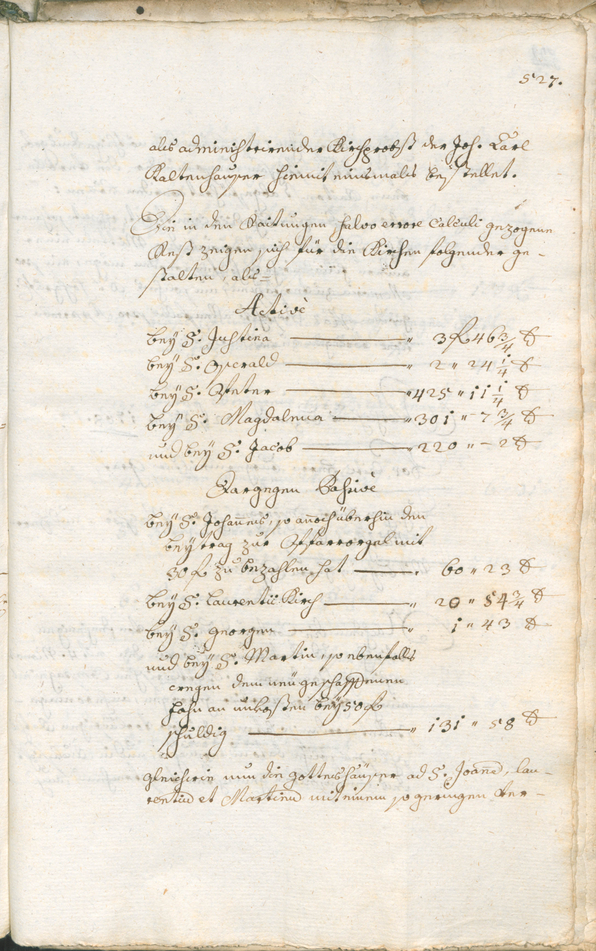 527.
als administrierender Kirchprobst der Joh. Carl
Kaltenhauser hiemit einsmals bestellet.
Die in den Raitungen salvo errore calculi gezogene
Rest zeigen sich für die Kirchen folgender ge-
stalten, als=
Activè
bey S. Justina " 3 f 46 3/4 x
bey S. Oswald " 2 " 24 1/4 x
bey S. Peter " 425 " 11 1/4 x
bey S. Magdalena " 301 " - 7 3/4 x
und bey S. Jacob " 220 " - 2 x
Dargegen Passivè
bey S. Johannis, so annoch überhin den
beytrag zur Pfarrorgel mit
50 f zu bezahlen hat " 60 " 23 x
bey S. Laurentii Kirch " 20 " 54 3/4 x
bey S. Georgen " 1 " 43 x
und bey S. Martin, so ebenfalls
wegen dem neu geschaffenen
an unkosten bey 50 f
schuldig " 131 " 58 x
gleichwie nun die gottshäuser ad S. Joann, lau-
rentium et Martinum mit einem so geringen Ver-